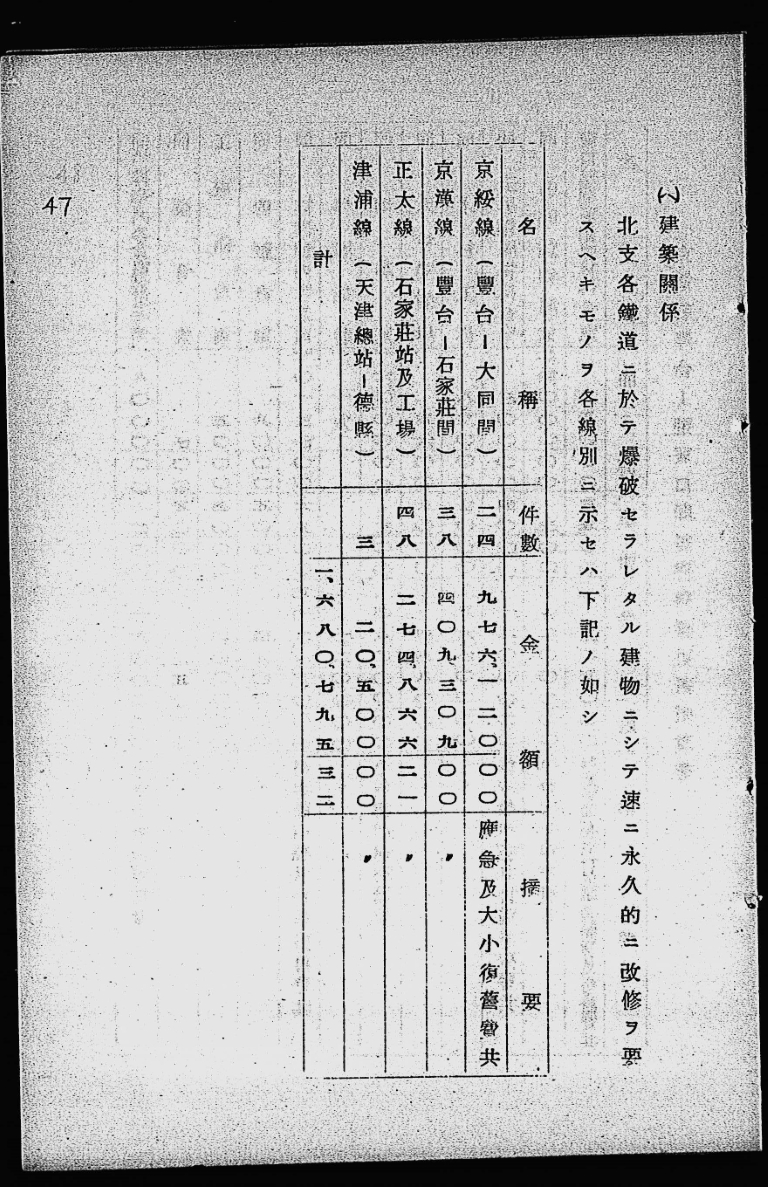 (ヘ)建築關係
北支各鐵道ニ於テ爆破セラレタル建物ニシテ速ニ永久的ニ改修ヲ要
スヘキモノヲ各線別ニ示セハ下記ノ如シ
名稱 件數 金額 摘要
京綏線(豐台ー大同間) 二四 九七六、一二〇〇〇 應急及大小復舊費共
京漢線(豐台ー石家莊間) 三八 四〇九、三〇九〇〇 〃
正太線(石家莊站及工場) 四八 二七四、八六六二一 〃
津浦線(天津總站ー德縣) 三 二〇、五〇〇〇〇 〃
計 一、六八〇、七九五三二
47